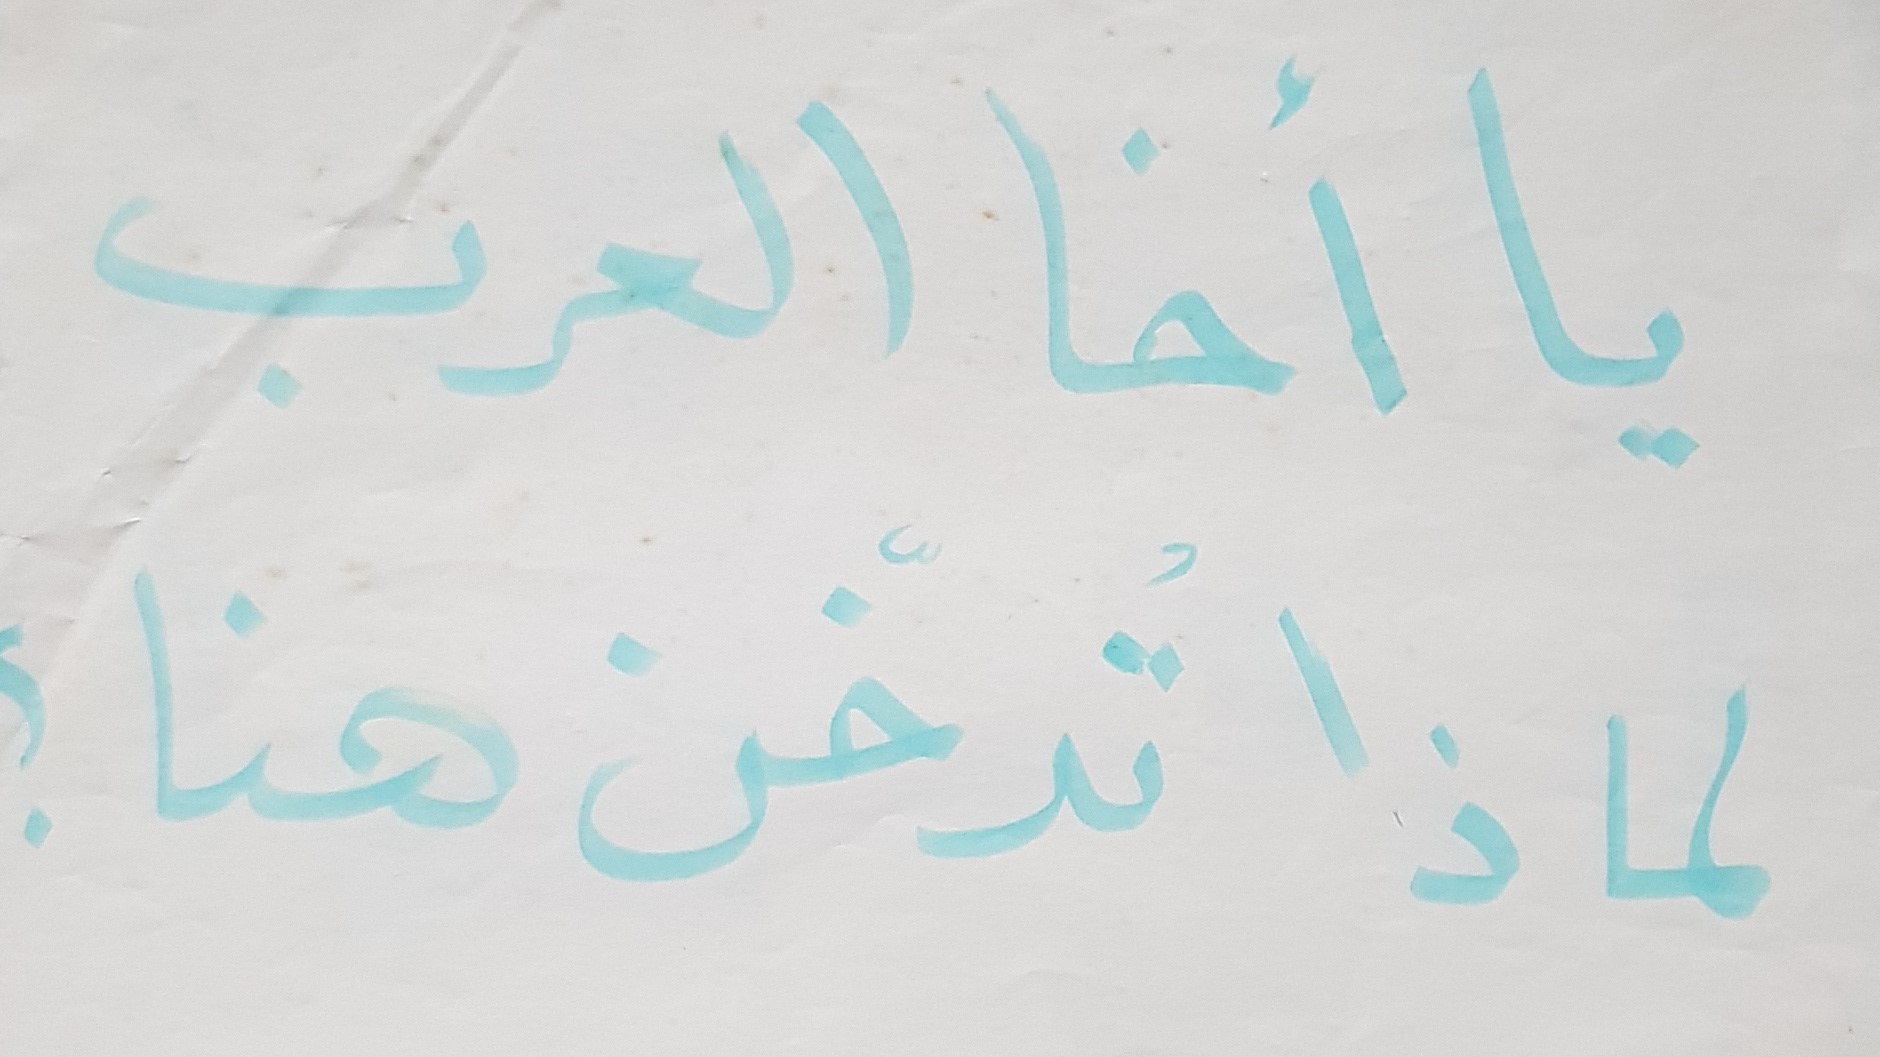 يا أخا العرب
لماذا تُدخّن هنا؟